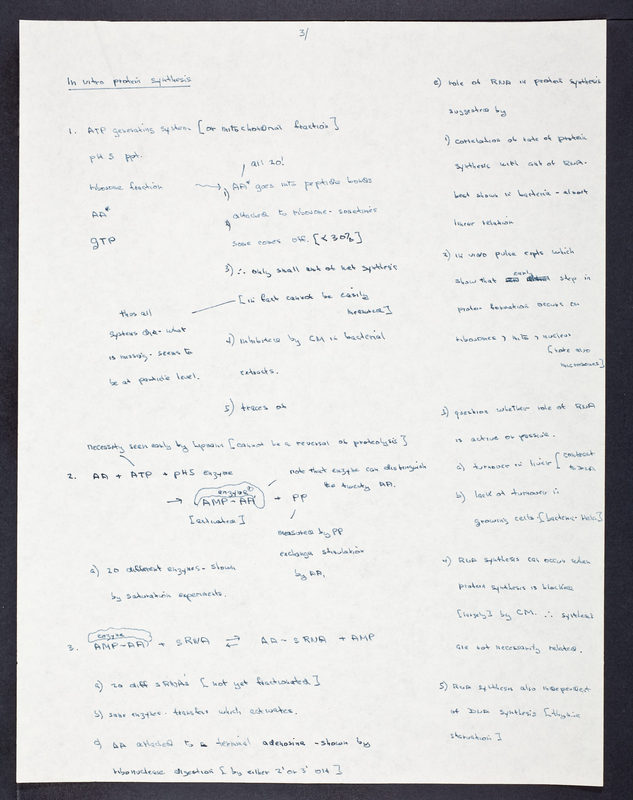 3/
In vitro protein synthesis
1. ATP generating system [or mitochondrial fraction]
pH 5 ppt.
ribosome fraction
AA*
GTP
all 20!
1) AA* goes into peptide bonds
2) attached to ribosome - sometimes
some comes off. [< 30%]
3) ∴ only small amt of net synthesis
[in fact cannot be easily
measured]
thus all
systems are - what
is missing - seems to
be at particle level.
4) inhibited by CM in bacterial
extracts.
5) traces of
necessity seen early by Lipmann [cannot be a reversal of proteolysis]
2. AA + ATP + pH5 enzyme
note that enzyme can distinguish
to twenty AA.
→ enzyme
AMP - AA + PP
[activated]
measured by PP
exchange stimulation
by AA.
a) 20 different enzymes - shown
by saturation experiments.
3. enzyme
AMP~AA + sRNA ⇌ AA~sRNA + AMP
a) 20 diff sRNA's [not yet fractionated]
b) same enzymes - transfer which activates.
c) AA attached to a terminal adenosine - shown by
ribonuclease digestion [by either 2' or 3' OH]
e) role of RNA in protein synthesis
suggested by
1) correlation of rate of protein
synthesis with amt of RNA.
best shown in bacteria - almost
linear relation
2) in vivo pulse expts which
show that early step in
protein formation occurs on
ribosomes > mito > nuclear
[note also
microsomes]
3) question whether role of RNA
is active or passive.
a) turnover in liver [contrast
to DNA
b) lack of turnover in
growing cells - [bacteria - HeLa]
4) RNA synthesis can occur when
protein synthesis is blocked
[largely] by CM. ∴ syntheses
are not necessarily related.
5) RNA synthesis also independent
of DNA synthesis [thymine
starvation]